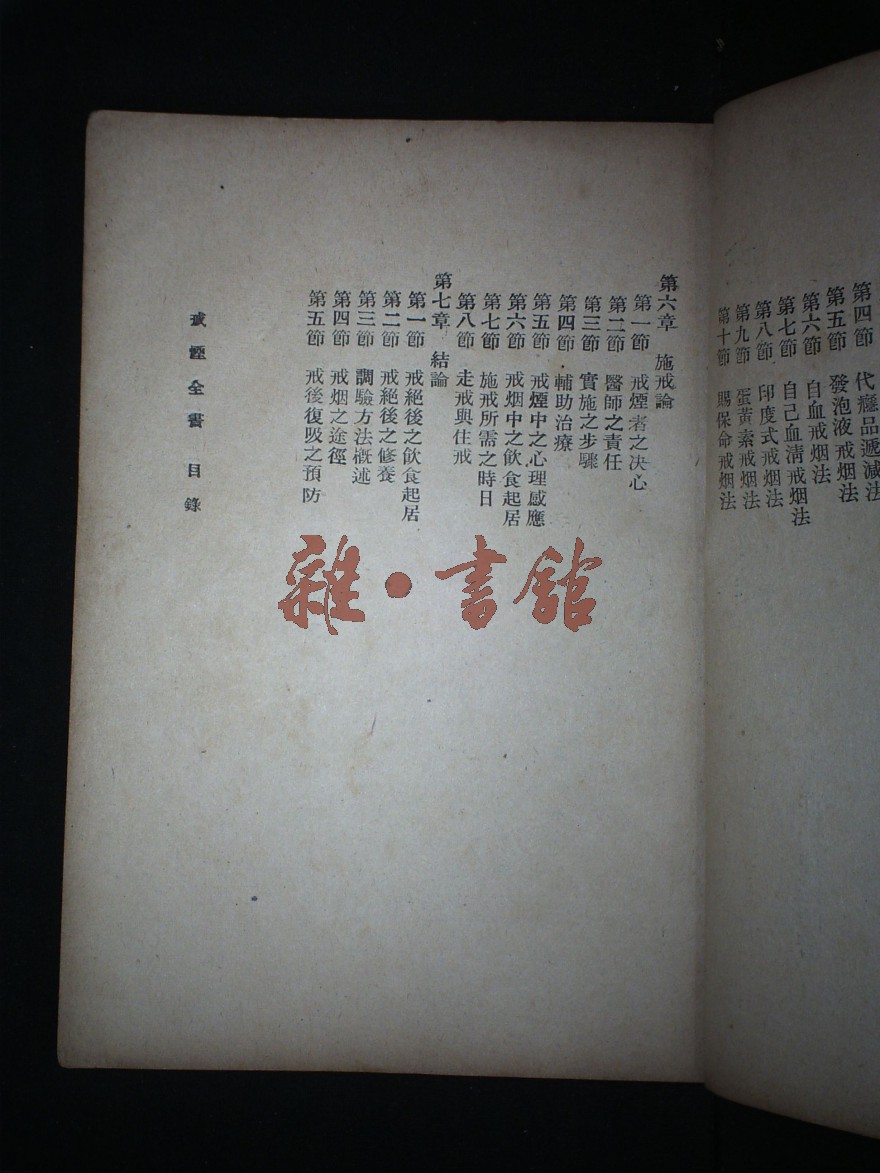 第四節 代癮品遞減法
第五節 發泡液戒烟法
第六節 自血戒烟法
第七節 自己血清戒烟法
第八節 印度式戒烟法
第九節 蛋黃素戒烟法
第十節 賜保命戒烟法
第六章 施戒論
第一節 戒煙者之決心
第二節 醫師之責任
第三節 實施之步驟
第四節 輔助治療
第五節 戒煙中之心理感應
第六節 戒烟中之飲食起居
第七節 施戒所需之時日
第八節 走戒與住戒
第七章 結論
第一節 戒絕後之飲食起居
第二節 戒絕後之修養
第三節 調驗方法概述
第四節 戒烟之途徑
第五節 戒後復吸之預防
戒煙全書 目錄
雜·書館